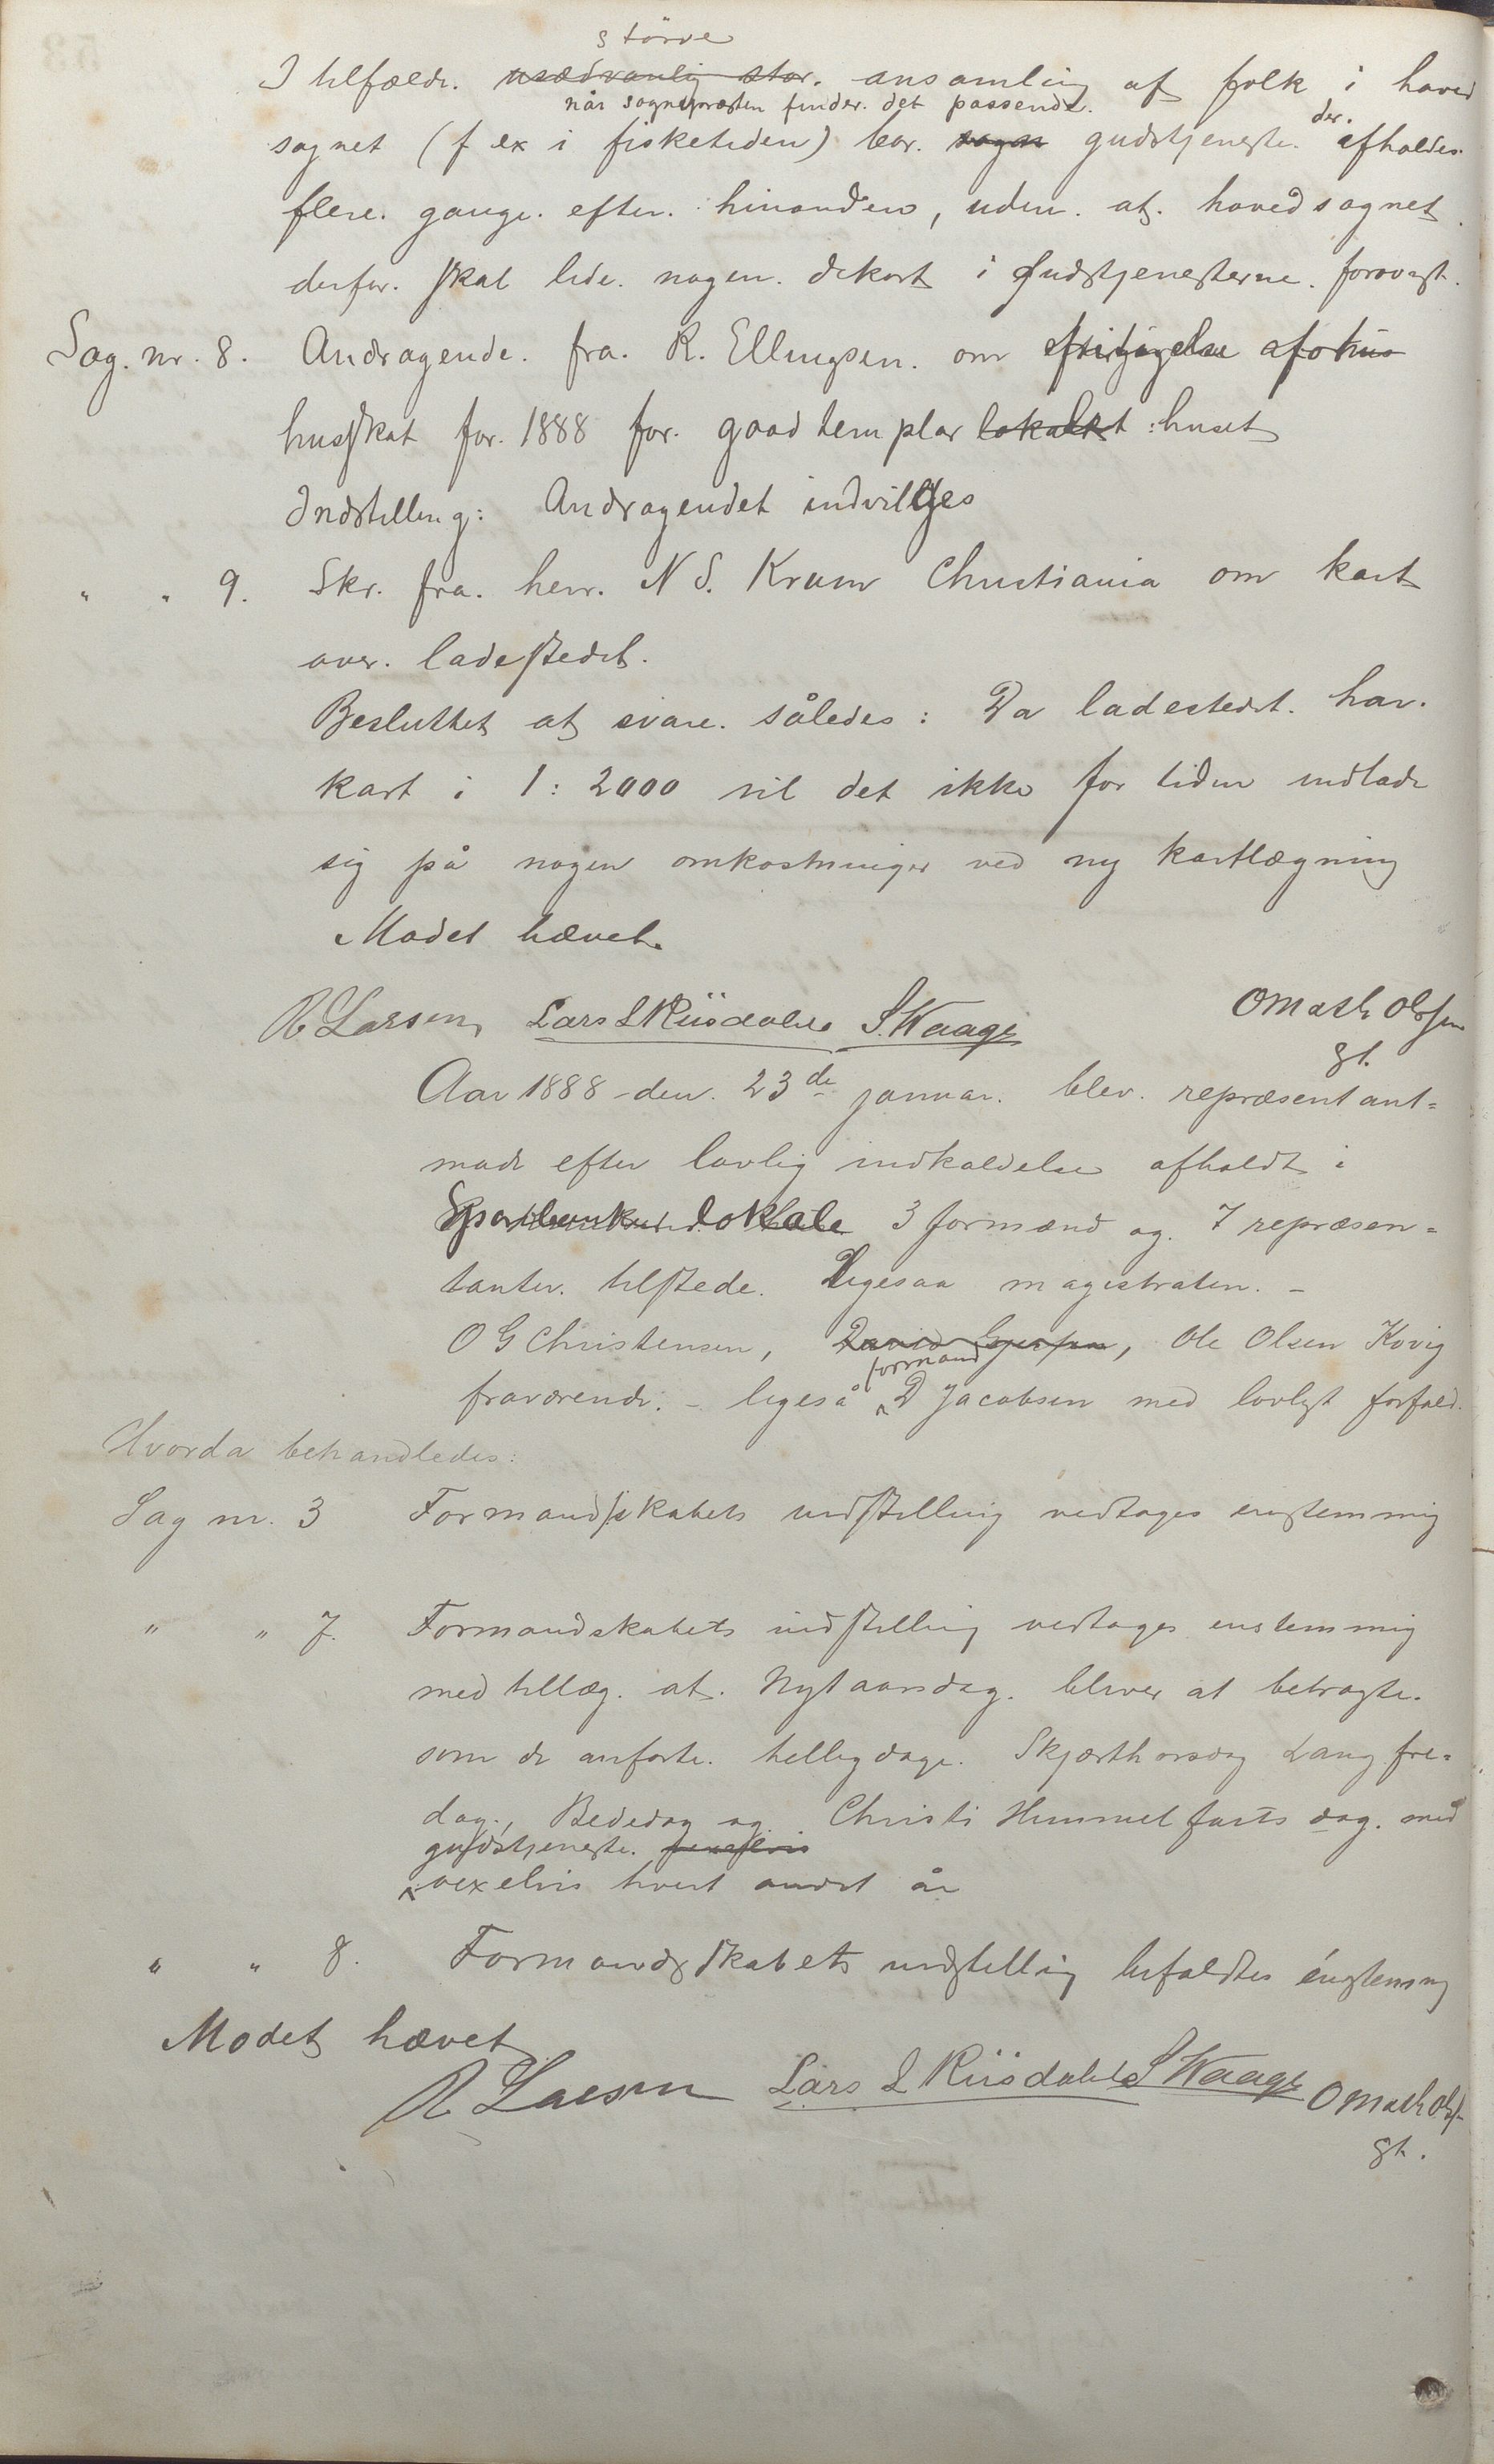 större
I tilfælde. usædvanlig stor. ansamling af folk i hoved
når sognepræsten finder. det passende. der.
sognet (f ex i fisketiden) bør. sogn gudstjeneste. afholdes
flere. gange. efter. hinanden, uden. at. hovedsognet
derfor. skal lide. nogen. dekort i Gudstjenesterne. forøvrigt.
Sag. nr. 8. Andragende. fra. R. Ellingsen. om
husskat for. 1888 for. goodtemplar lokalet :huset
Indstilling: Andragendet indvilges
" " 9. Skr. fra. herr. N S. Krum Christiania om kart
over. ladestedet.
Besluttet at svare. således: Da ladestedet. har.
kart i 1:2000 vil det ikke for tiden indlade
sig på nogen omkostninger ved ny kartlægning
Mødet hævet.
R Larsen, Lars L Riisdahl S. Waage O Math Olsen
gt.
Aar 1888 den. 23de januar. blev. repræsentant=
møde efter lovlig indkaldelse afholdt i
Sparebankens lokale 3 formænd og. 7 repræsen=
tanter. tilstede. Ligesaa magistraten. -
O G Christensen, David, Ole Olsen Kovig
formand
fraværende. - ligeså D Jacobsen med lovligt forfald.
Hvorda behandledes:
Sag nr. 3 Formandskabets indstilling vedtages enstemmig
" " 7. Formandskabets indstilling vedtages enstemmig
med tillæg. at. Nytaarsdag. bliver at betragte.
som de anførte. helligdage. Skjærthorsdag Langfre=
dag., Bededag og. Christi Himmelfarts dag. med
gudstjeneste.
vexelvis hvert andet år
" " 8. Formandskabets indstilling bifaldtes énstemmig
Mødet hævet
R Larsen Lars L Riisdahl S Waage O Math Ols
gt.